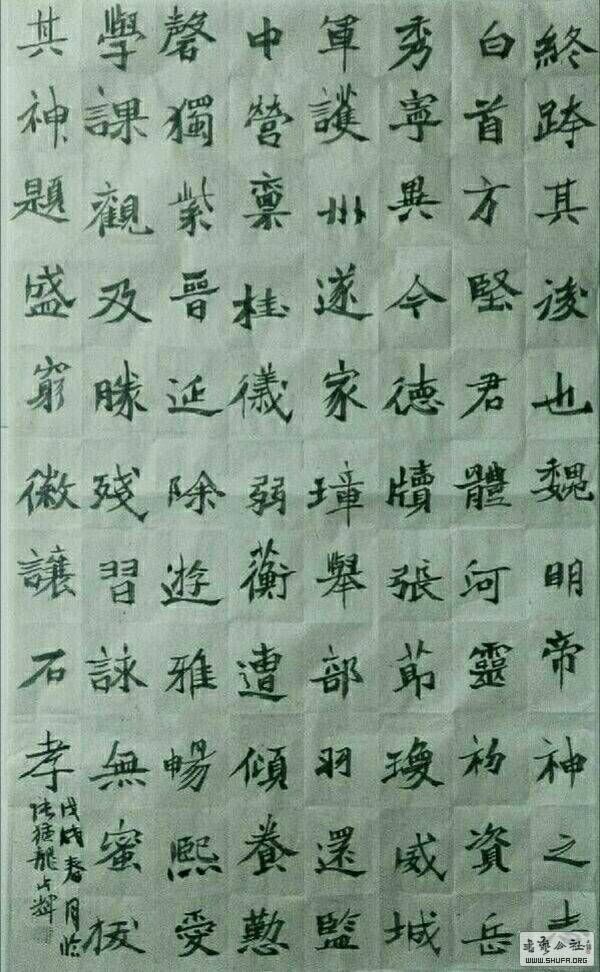 終跨其後也魏明帝神之
白首方堅君體河靈初資岳
秀寧異今德牘張節瓊威城
軍護州遂家璋舉部羽還監
中營稟桂儀弱蘅遭傾養懃
馨獨紫晉延除遊雅暢熙愛
學課觀及賸殘習詠無蜜拔
其神題盛窮徽讓石孝
戊戌春月臨
張猛龍
書法公社
WWW.SHUFA.ORG